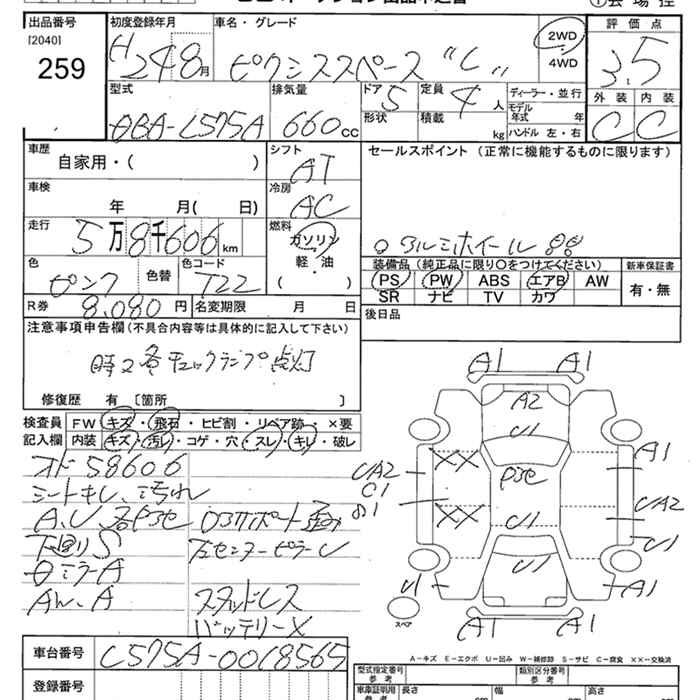 出品番号 初度登録年月 車名・グレード 評価点
[2040]
259
H24 8月 ピクシススペース "L" 2WD 4WD 3.5
型式 排気量 ドア 定員 ディーラー・並行 外装 内装
DBA-L575A 660cc 5 4人 モデル年式 年 C C
形状 積載 kg ハンドル 左・右
車歴 シフト セールスポイント (正常に機能するものに限ります)
自家用・( ) AT
車検 冷房
年 月( 日) AC
走行 燃料
5万8千606km ガソリン 軽・油 ( ) アルミホイール
色 色替 色コード 装備品(純正品に限り○をつけてください) 新車保証書
ピンク T22 PS PW ABS エアB AW 有・無
SR ナビ TV カワ
R券 8,080円 名変期限 月 日 後日品
注意事項申告欄(不具合内容等は具体的に記入して下さい)
時々 チェックランプ点灯
修復歴 有 〔箇所 〕
検査員 FW キズ・飛石・ヒビ割・リペア跡・×要
記入欄 内装 キズ・汚レ・コゲ・穴・スレ・キレ・破レ
58606
シートキレ、汚れ
A、U
下廻りS
ミラーA
スタッドレス
バッテリーX
A1 A1
A2
U1
XX XX
A1
UA2
C1
U1
UA2
U1
U1
A1 A1
A1 A1
スペア
A-キズ E-エクボ U-凹み W-補修跡 S-サビ C-腐食 XX-交換済
車台番号 L575A-0018565
登録番号
型式指定番号 参考 類別区分番号 参考
車庫証明用 参考 長さ 幅 高さ